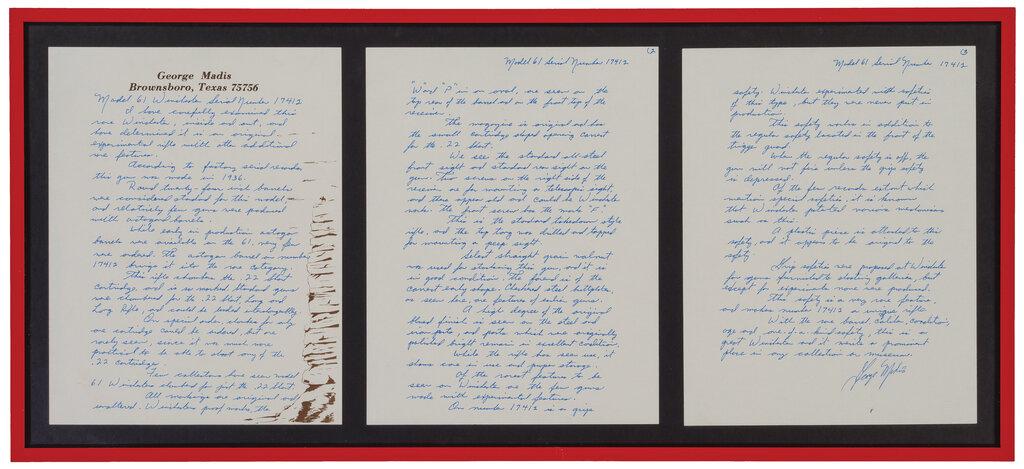 George Madis
Brownsboro, Texas 75756
Model 61 Winchester Serial Number 17412
I have carefully examined this
rare Winchester, inside and out, and
have determined it is an original
experimental rifle with other additional
rare features.
According to factory serial records
this gun was made in 1936.
Round twenty-four inch barrels
were considered standard for this model,
and relatively few guns were produced
with octagon barrels.
While early in production octagon
barrels were available on the 61, very few
were ordered. The octagon barrel on number
17412 brings it into the rare category.
This rifle chambers the .22 Short
cartridge, and is so marked. Standard guns
were chambered for the .22 Short, Long and
Long Rifle, and could be loaded interchangeably.
On special order, chambers for any
one cartridge could be ordered, but are
rarely seen, since it was much more
practical to be able to shoot any of the
.22 cartridges.
Few collectors have seen model
61 Winchesters chambered for just the .22 Short.
All markings are original and
unaltered. Winchester proof marks, the
(2
Model 61 Serial Number 17412
"W" over "P" in an oval, are seen on the
top rear of the barrel and on the front top of the
receiver.
The magazine is original and has
the small cartridge shaped opening correct
for the .22 Short.
We see the standard all-steel
front sight and standard rear sight on the
gun. Two screws on the right side of the
receiver are for mounting a telescopic sight,
and these appear old and could be Winchester
made. The front screw has the mark "F".
This is the standard takedown style
rifle, and the top tang was drilled and tapped
for mounting a peep sight.
Select straight grain walnut
was used for stocking this gun, and it is
in good condition. The forend is of the
correct early shape. Checkered steel buttplates,
as seen here, are features of earlier guns.
A high degree of the original
blued finish is seen on the steel and
iron parts, and parts which were originally
polished bright remain in excellent condition.
While the rifle has seen use, it
shows care in use and proper storage.
Of the rarest features to be
seen on Winchesters are the few guns
made with experimental features.
On number 17412 is a grip
(3
Model 61 Serial Number 17412
safety. Winchester experimented with safeties
of this type, but they were never put in
production.
This safety works in addition to
the regular safety located in the front of the
trigger guard.
When the regular safety is off, the
gun will not fire unless the grip safety
is depressed.
Of the few records extant which
mention special safeties, it is known
that Winchester patented various mechanisms
such as this.
A plastic piece is attached to this
safety, and it appears to be original to the
safety.
Grip safeties were proposed at Winchester
for guns furnished to shooting galleries, but
except for experiments none were produced.
This safety is a very rare feature,
and makes number 17412 a unique rifle.
With the rare barrel, caliber, condition,
age and one-of-a-kind safety, this is a
great Winchester and it merits a prominent
place in any collection or museum.
George Madis